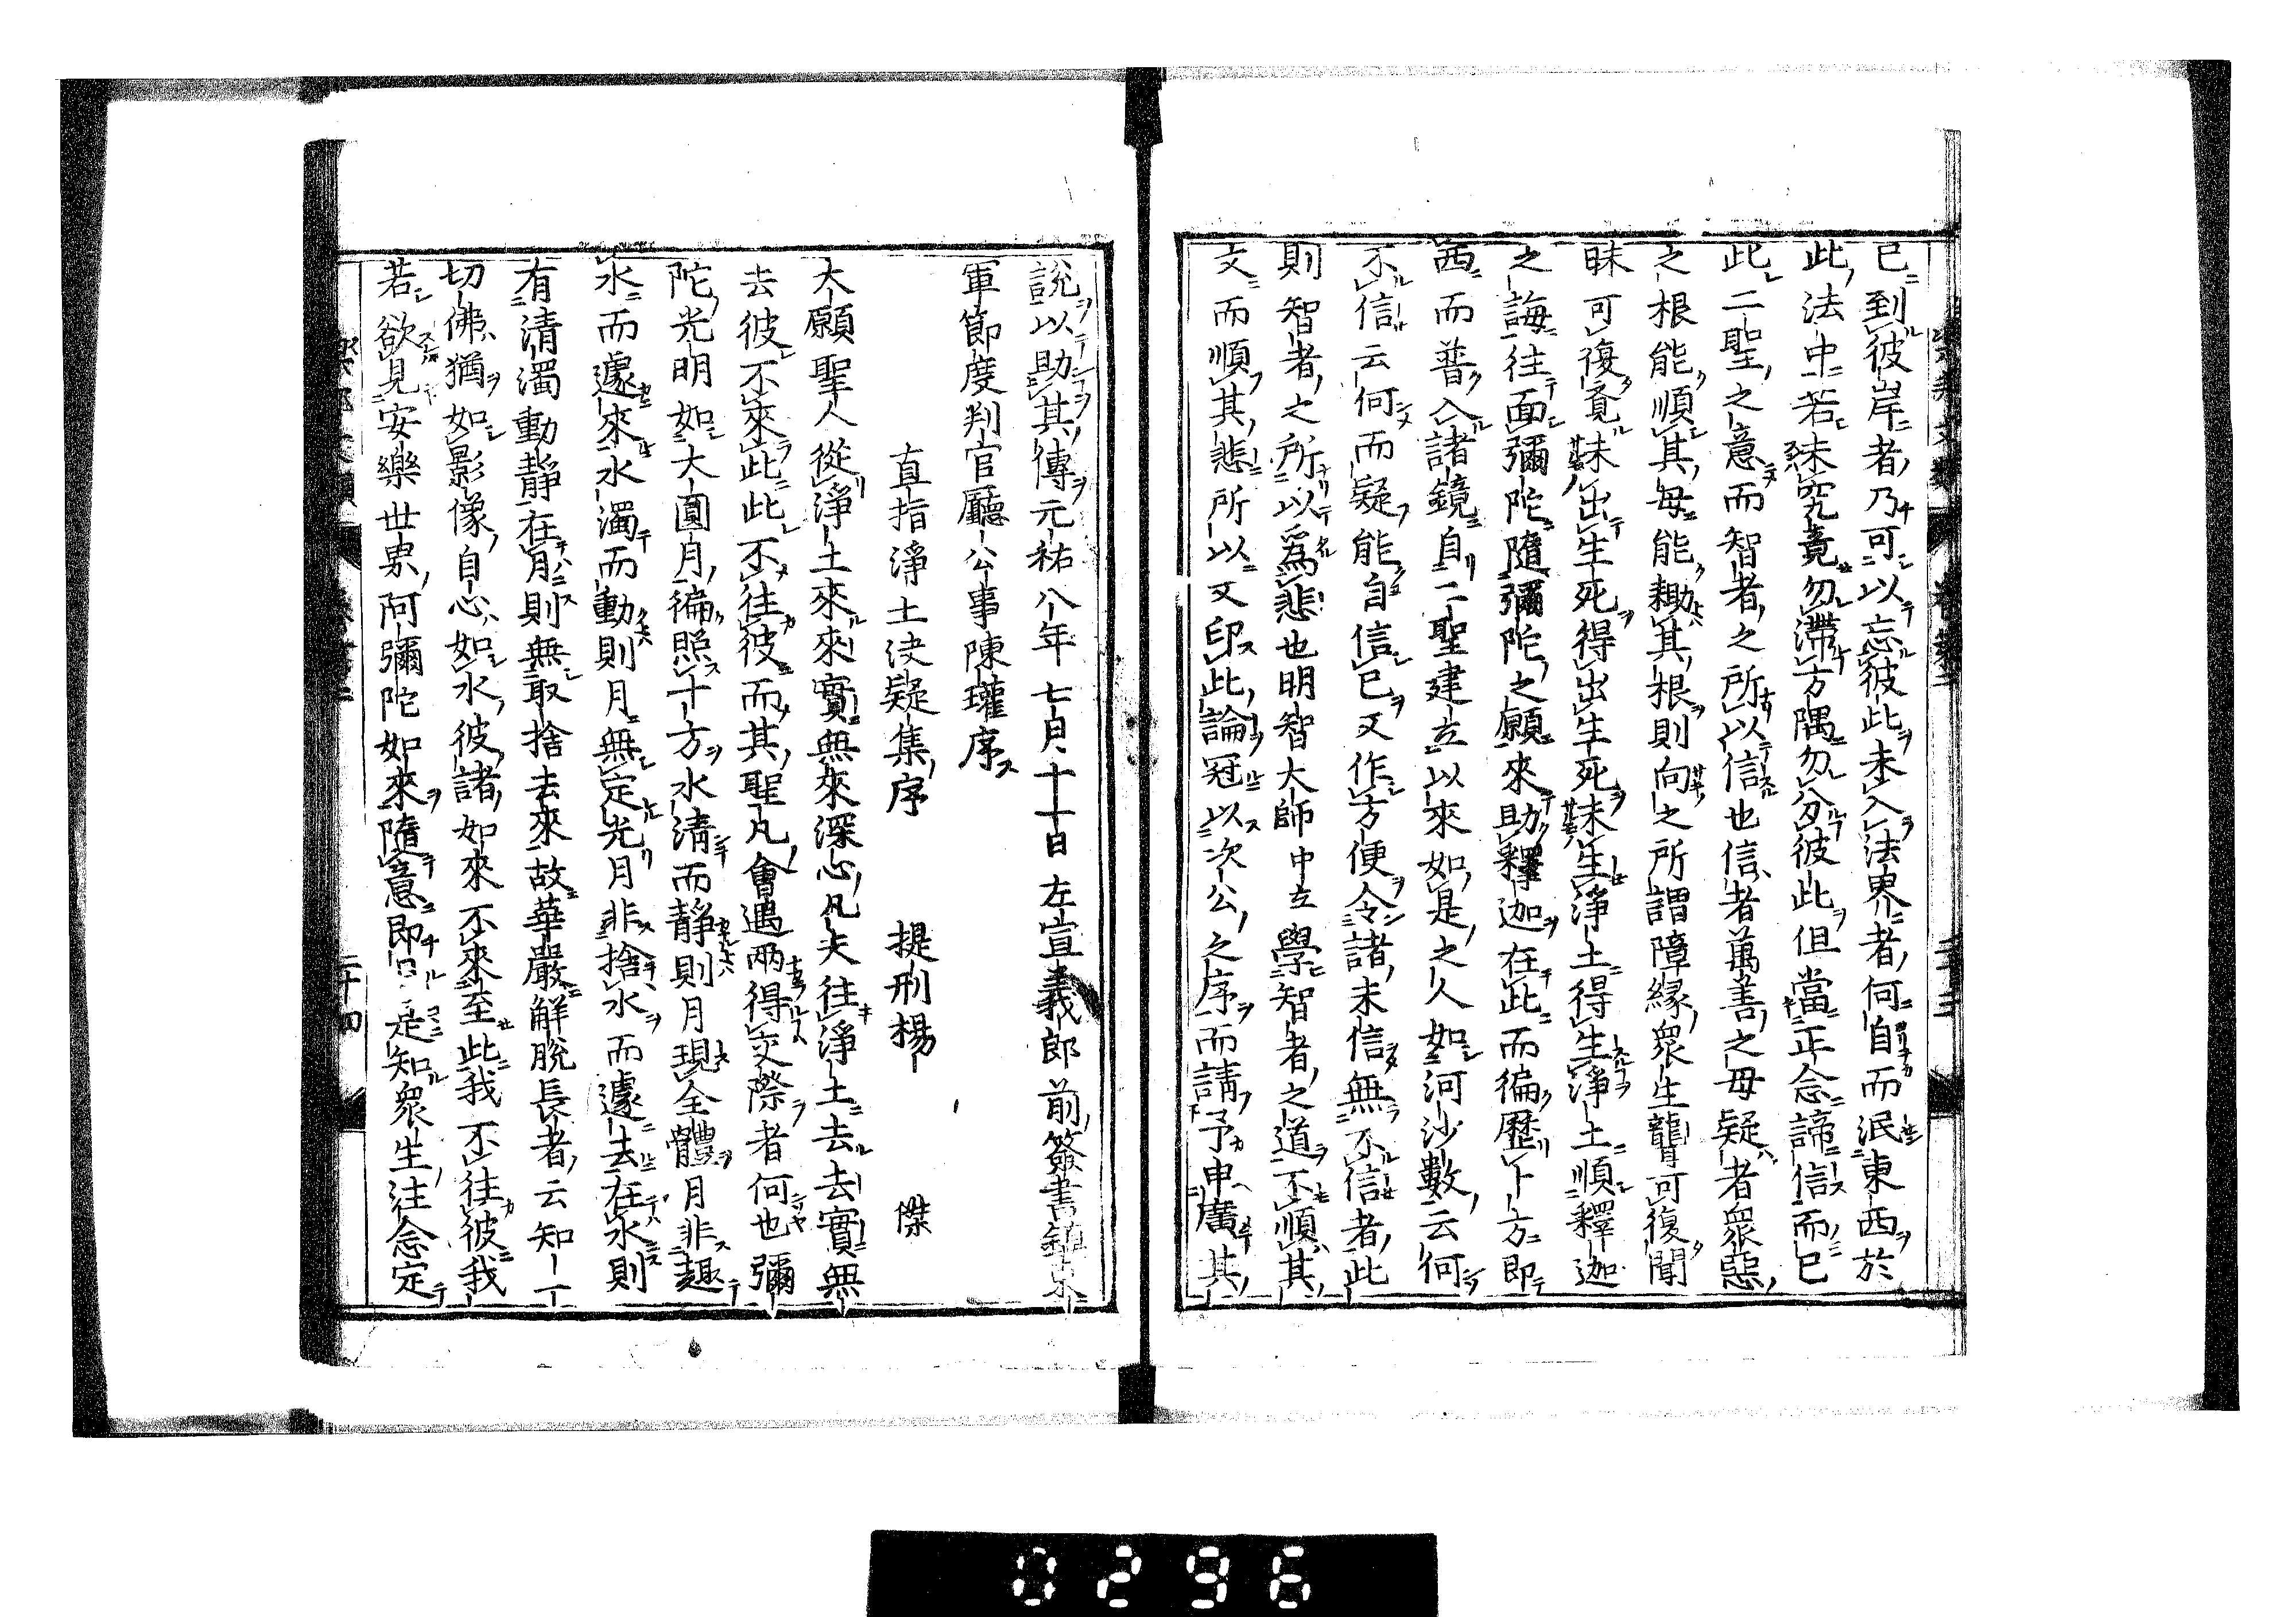 已到彼岸者乃可以忘彼此未入法界者何自而泯東西於
此法中若未究竟勿滯方隅勿分彼此但當正念諦信而已
此二聖之意而智者之所以信也信者萬善之母疑者衆惡
之根能順其母能耡其根則向之所謂障緣衆生聾可復聞
昧可復覓未出生死得出生死未生淨土得生淨土順釋迦
之誨往面彌陀隨彌陀之願來助釋迦在此而徧歷十方即
西而普入諸鏡自二聖建立以來如是之人如河沙數云何
不信云何而疑能自信已又作方便令諸未信無不信者此
則智者之所以爲悲也明智大師中立學智者之道不順其
文而順其悲所以又印此論冠以次公之序而請予申廣其
說以助其傳元祐八年七月十一日左宣義郎前簽書鎮東
軍節度判官廳公事陳瓘序
直指淨土決疑集序 提刑楊 傑
大願聖人從淨土來來實無來深心凡夫往淨土去去實無
去彼不來此此不往彼而其聖凡會遇兩得交際者何也彌
陀光明如大圓月徧照十方水清而靜則月現全體月非趣
水而遽來水濁而動則月無定光月非捨水而遽去在水則
有清濁動靜在月則無取捨去來故華嚴解脫長者云知一
切佛猶如影像自心如水彼諸如來不來至此我不往彼我
若欲見安樂世界阿彌陀如來隨意即是知衆生注念定
二十四
0296